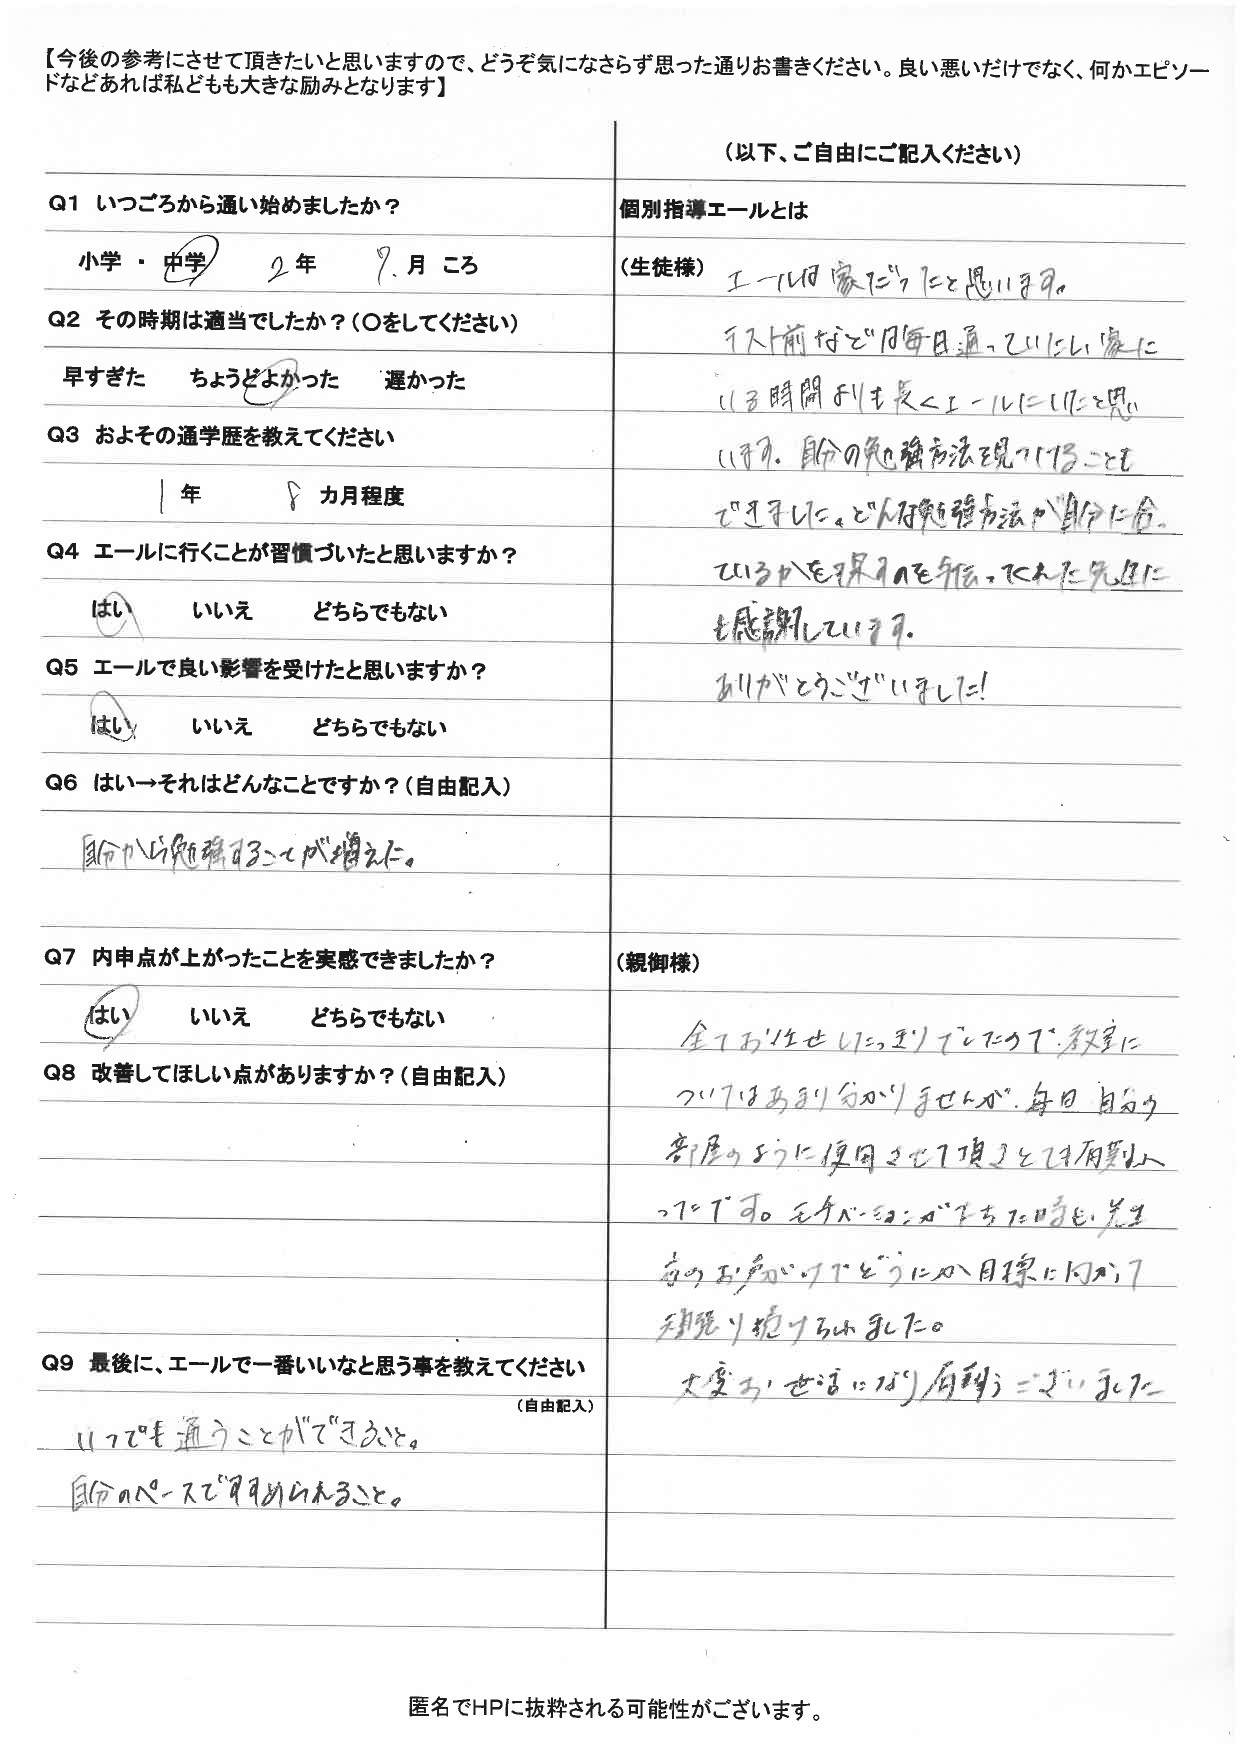 【今後の参考にさせて頂きたいと思いますので、どうぞ気になさらず思った通りお書きください。良い悪いだけでなく、何かエピソー
ドなどあれば私どもも大きな励みとなります】
Q1 いつごろから通い始めましたか？
小学 ・ 中学 2 年 7 月 ころ
Q2 その時期は適当でしたか？（○をしてください）
早すぎた ちょうどよかった 遅かった
Q3 およその通学歴を教えてください
1 年 8 カ月程度
Q4 エールに行くことが習慣づいたと思いますか？
はい いいえ どちらでもない
Q5 エールで良い影響を受けたと思いますか？
はい いいえ どちらでもない
Q6 はい→それはどんなことですか？（自由記入）
自分から勉強することが増えた。
Q7 内申点が上がったことを実感できましたか？
はい いいえ どちらでもない
Q8 改善してほしい点がありますか？（自由記入）
Q9 最後に、エールで一番いいなと思う事を教えてください
（自由記入）
いつでも通うことができること。
自分のペースですすめられること。
（以下、ご自由にご記入ください）
個別指導エールとは
（生徒様）
エールは家だったと思います。
テスト前などは毎日通っていたし、家に
いる時間よりも長くエールにいたと思い
います。自分の勉強方法を見つけることも
できました。どんな勉強方法が自分に合っ
ているかを探すのを手伝ってくれた先生に
も感謝しています。
ありがとうございました！
（親御様）
全てお任せしたっきりでしたので、教室に
ついてはあまり分かりませんが、毎日 自分の
部屋のように使用させて頂きとても有難か
ったです。モチベーションがおちた時も、先生
方のお声がけでどうにか目標に向かって
頑張り続けられました。
大変お世話になり有難うございました
匿名でHPに抜粋される可能性がございます。